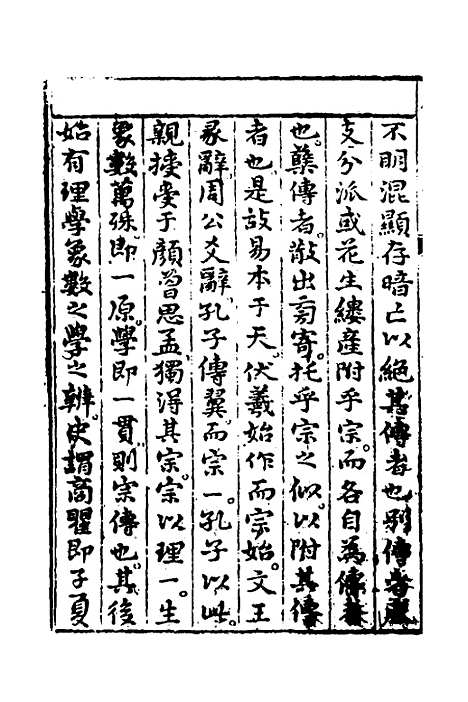 不明混顯存暗亡以絕其傳者也別傳者
支分派或花生縷產附乎宗而各自為傳者
也。孽傳者。散出旁寄。托乎宗之似。以附其傳
者也是故易本于天。伏羲始作而宗始。文王
彖辭周公爻辭孔子傳翼。而宗一。孔子以此。
親接受于顏曾思孟獨得其宗。宗以理一。生
象數萬殊即一原。學即一貫。則宗傳也。其後
始有理學象數之學之辨。史謂商瞿即子夏